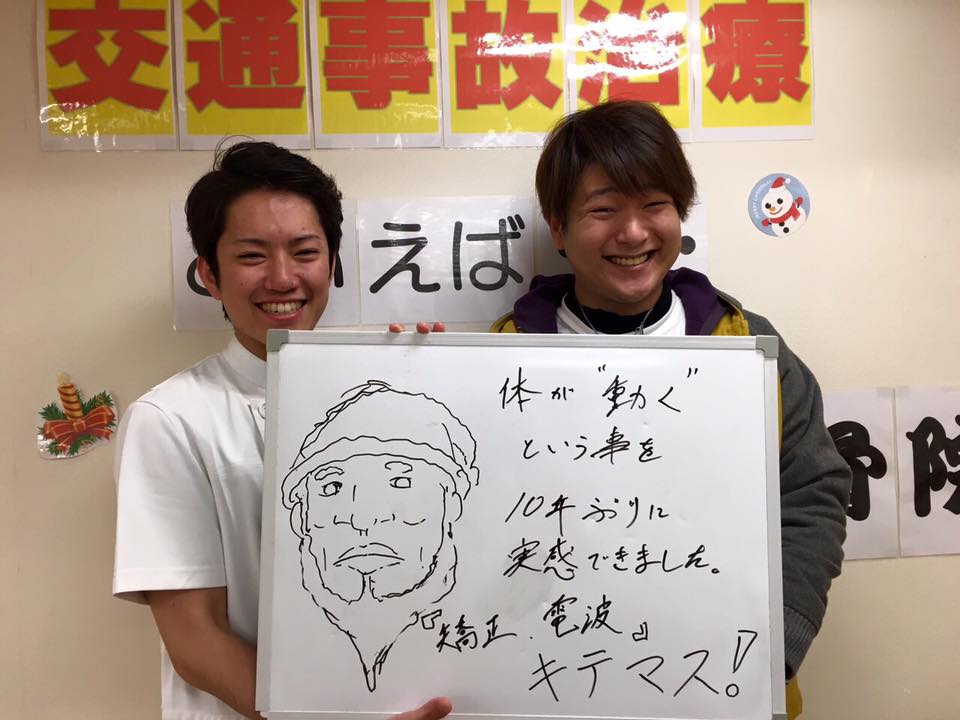 交通事故治療
えば
骨院
体が"動く"
という事を
10年ぶりに
実感できました。
『矯正、電波』
キテマス!